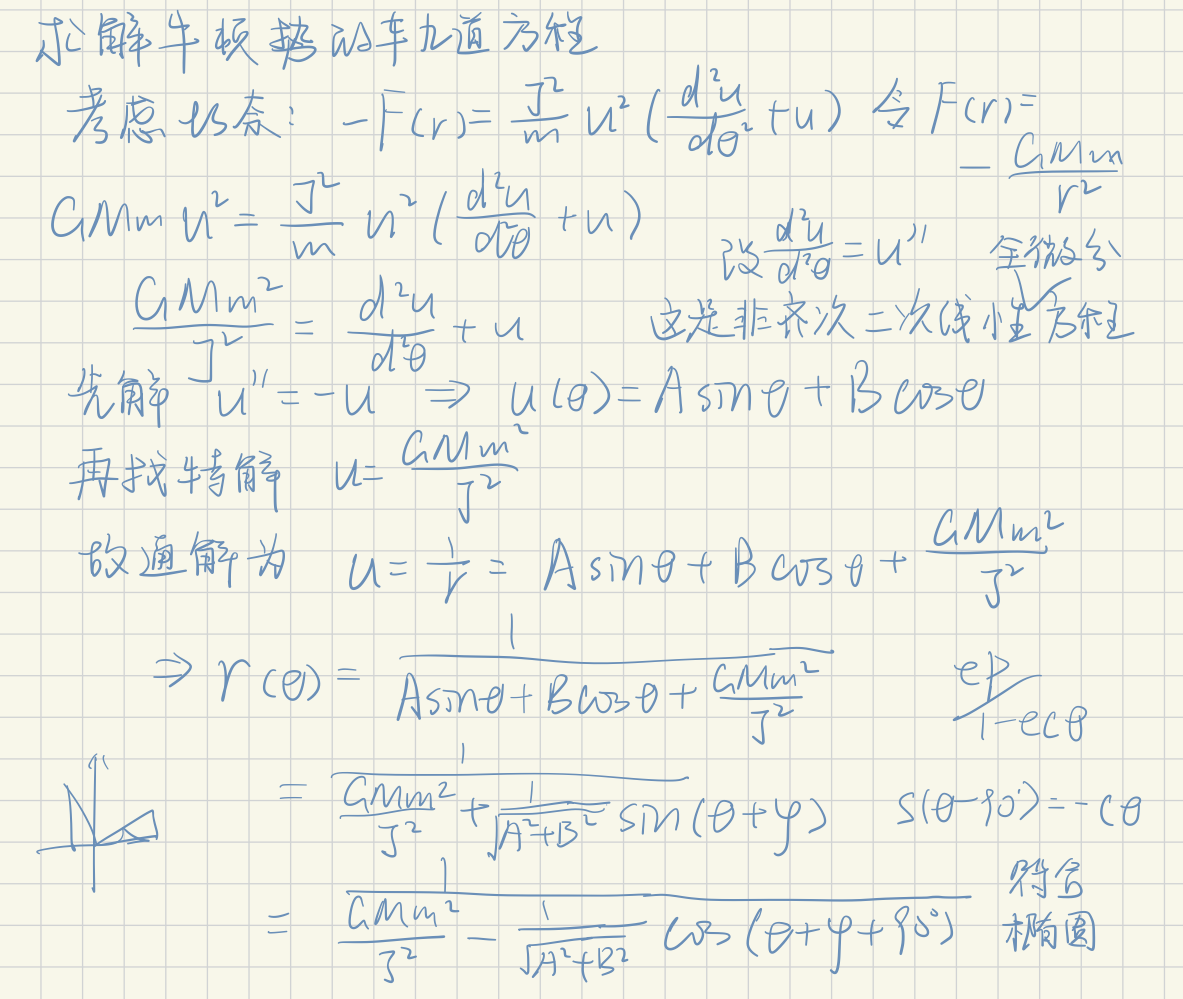 求解牛顿势的轨道方程
考虑比奈: -F(r) = J²/m u² (d²u/dθ² + u) 令 F(r) = - GMm/r²
GMm u² = J²/m u² (d²u/d²θ + u)
设 d²u/d²θ = u'' 全微分
GMm²/J² = d²u/d²θ + u
这是非齐次二次线性方程
先解 u'' = -u ⇒ u(θ) = A sinθ + B cosθ
再找特解 u = GMm²/J²
故通解为 u = 1/r = A sinθ + B cosθ + GMm²/J²
⇒ r(θ) = 1/(A sinθ + B cosθ + GMm²/J²)
ep/(1-ecθ)
= 1/(GMm²/J² + 1/√(A²+B²) sin(θ+φ))
s(θ-90°) = -cθ
= 1/(GMm²/J² - 1/√(A²+B²) cos(θ+φ+90°))
符合
椭圆